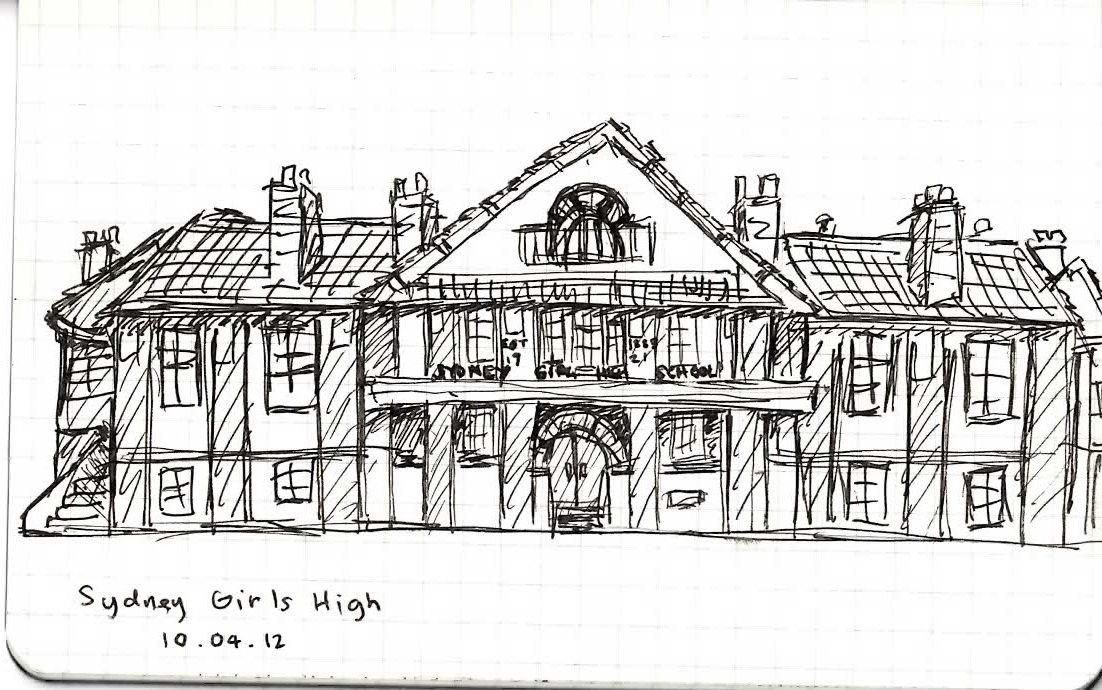 EST 1883
19 21
SYDNEY GIRLS HIGH SCHOOL
Sydney Girls High
10.04.12